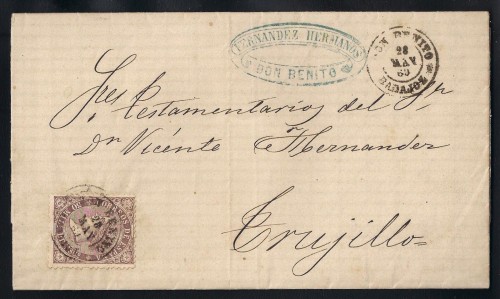 FERNANDEZ HERMANOS
DON BENITO
DON BENITO
28
MAY
69
BADAJOZ
Sres Testamentarios del Sr
Dn Vicente Hernandez
Trujillo
CORREOS DE
28
MAY